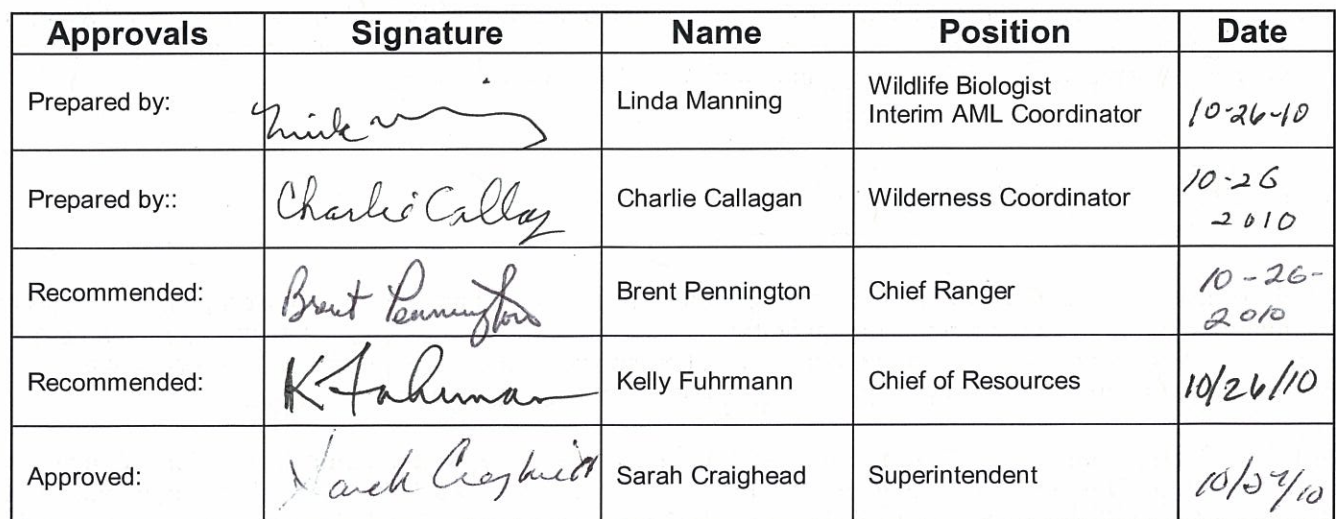 Approvals Signature Name Position Date
Prepared by: Linda Manning Wildlife Biologist
Interim AML Coordinator 10-26-10
Prepared by:: Charlie Callagan Wilderness Coordinator 10-26
2010
Recommended: Brent Pennington Brent Pennington Chief Ranger 10-26-
2010
Recommended: K Fuhrman Kelly Fuhrmann Chief of Resources 10/26/10
Approved: Sarah Craighead Sarah Craighead Superintendent